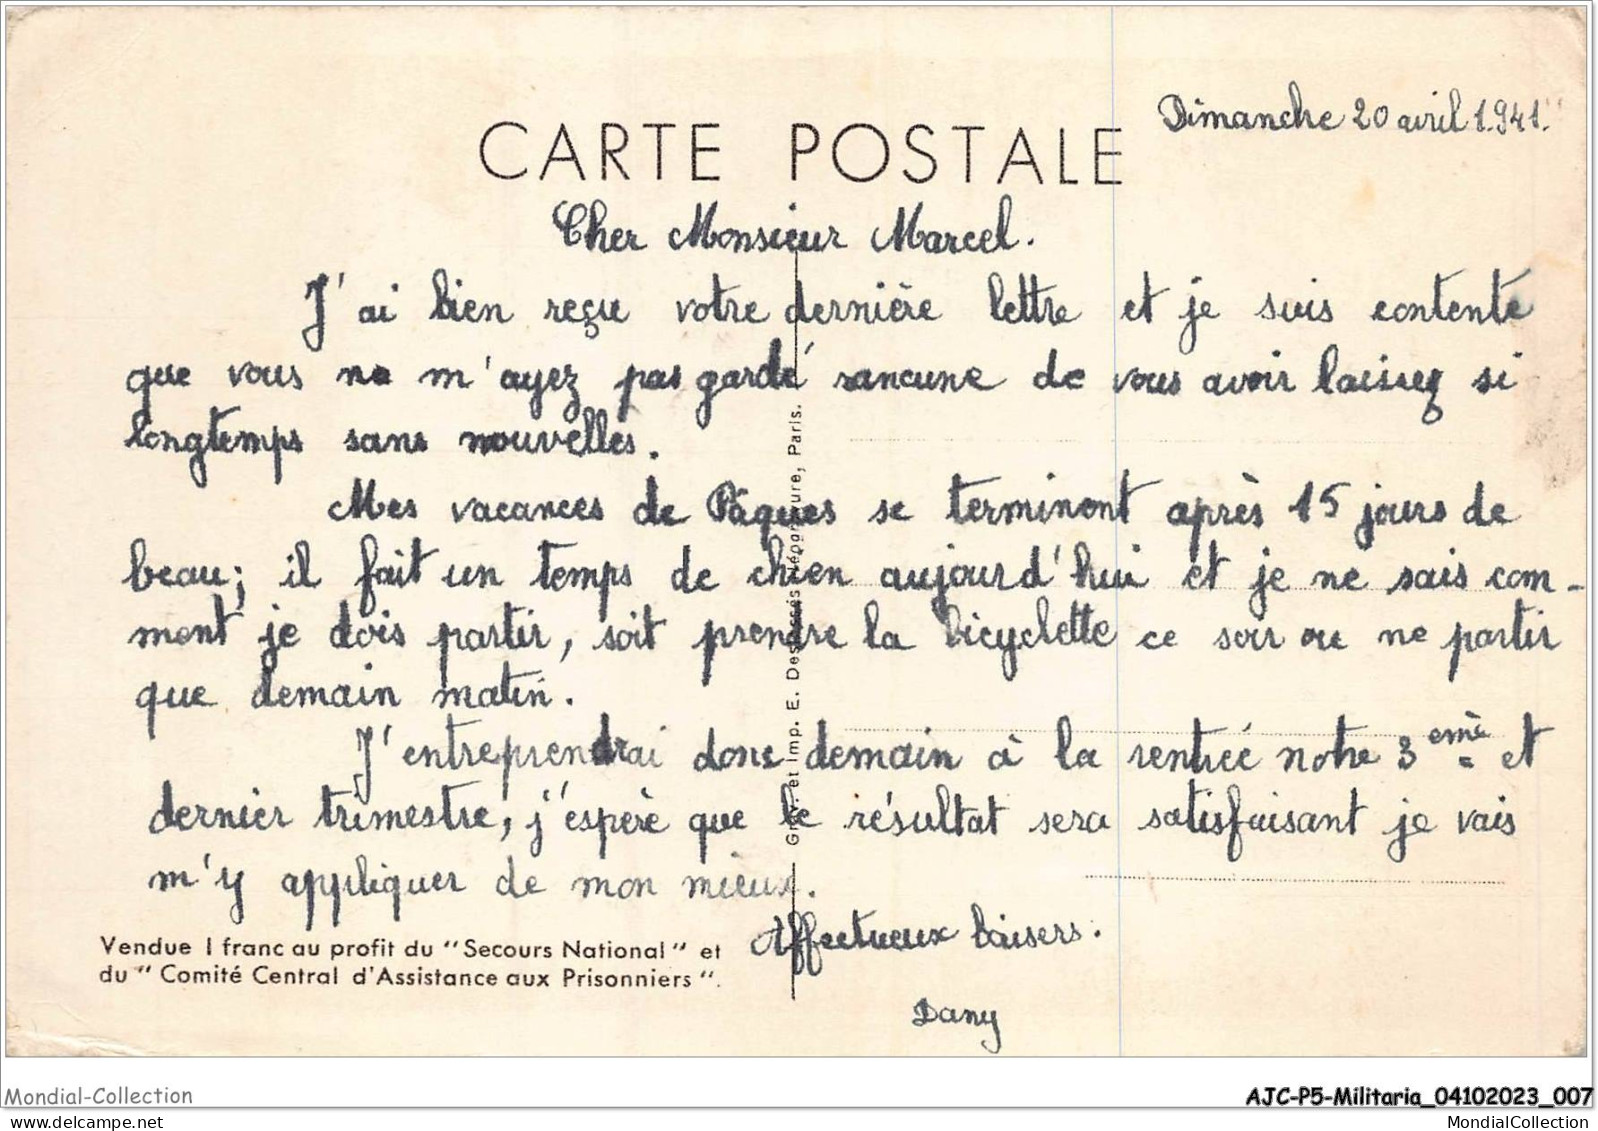 Dimanche 20 avril 1.941.
CARTE POSTALE
Cher Monsieur Marcel.
J'ai bien reçue votre dernière lettre et je suis contente
que vous ne m'ayez pas gardé rancune de vous avoir laissez si
longtemps sans nouvelles.
Mes vacances de Pâques se terminent après 15 jours de
beau; il fait un temps de chien aujourd'hui et je ne sais com-
ment je dois partir, soit prendre la bicyclette ce soir ou ne partir
que demain matin.
J'entreprendrai donc demain à la rentrée notre 3ème et
dernier trimestre, j'espère que le résultat sera satisfaisant je vais
m'y appliquer de mon mieux.
Affectueux baisers.
Dany
Vendue 1 franc au profit du "Secours National" et
du "Comité Central d'Assistance aux Prisonniers".
Grav. et Imp. E. Desfossés-Néogravure, Paris.
Mondial-Collection
AJC-P5-Militaria_04102023_007
www.delcampe.net
MondialCollection